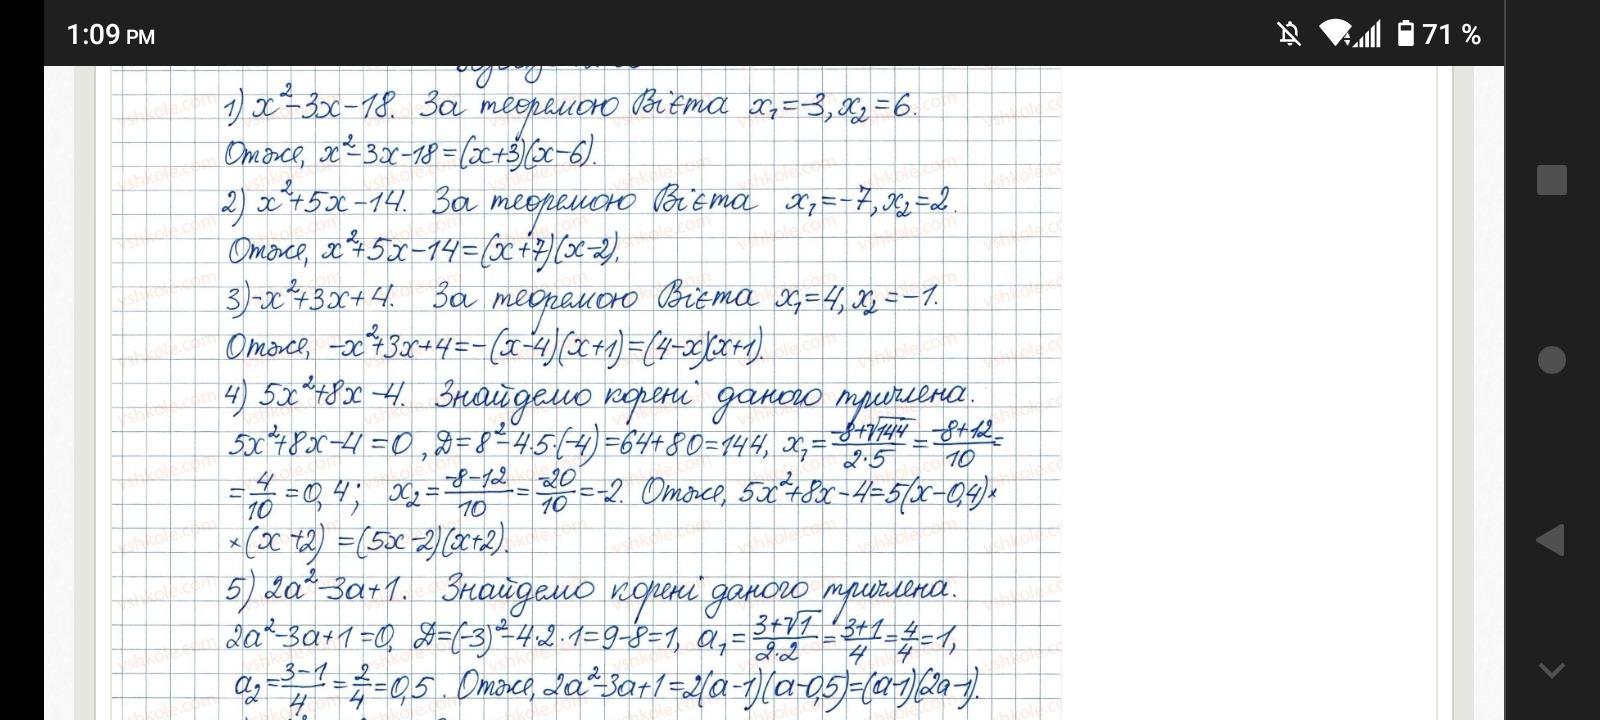 1:09 PM
71 %
1) x²-3x-18. За теоремою Вієта x₁=-3, x₂=6.
Отже, x²-3x-18=(x+3)(x-6).
2) x²+5x-14. За теоремою Вієта x₁=-7, x₂=2.
Отже, x²+5x-14=(x+7)(x-2).
3) -x²+3x+4. За теоремою Вієта x₁=4, x₂=-1.
Отже, -x²+3x+4=-(x-4)(x+1)=(4-x)(x+1).
4) 5x²+8x-4. Знайдемо корені даного тричлена.
5x²+8x-4=0, Д=8²-4·5·(-4)=64+80=144, x₁=(-8+√144)/(2·5)=(-8+12)/10=
=4/10=0,4; x₂=(-8-12)/10=-20/10=-2. Отже, 5x²+8x-4=5(x-0,4)×
×(x+2)=(5x-2)(x+2).
5) 2a²-3a+1. Знайдемо корені даного тричлена.
2a²-3a+1=0, Д=(-3)²-4·2·1=9-8=1, a₁=(3+√1)/(2·2)=(3+1)/4=4/4=1,
a₂=(3-1)/4=2/4=0,5. Отже, 2a²-3a+1=2(a-1)(a-0,5)=(a-1)(2a-1).